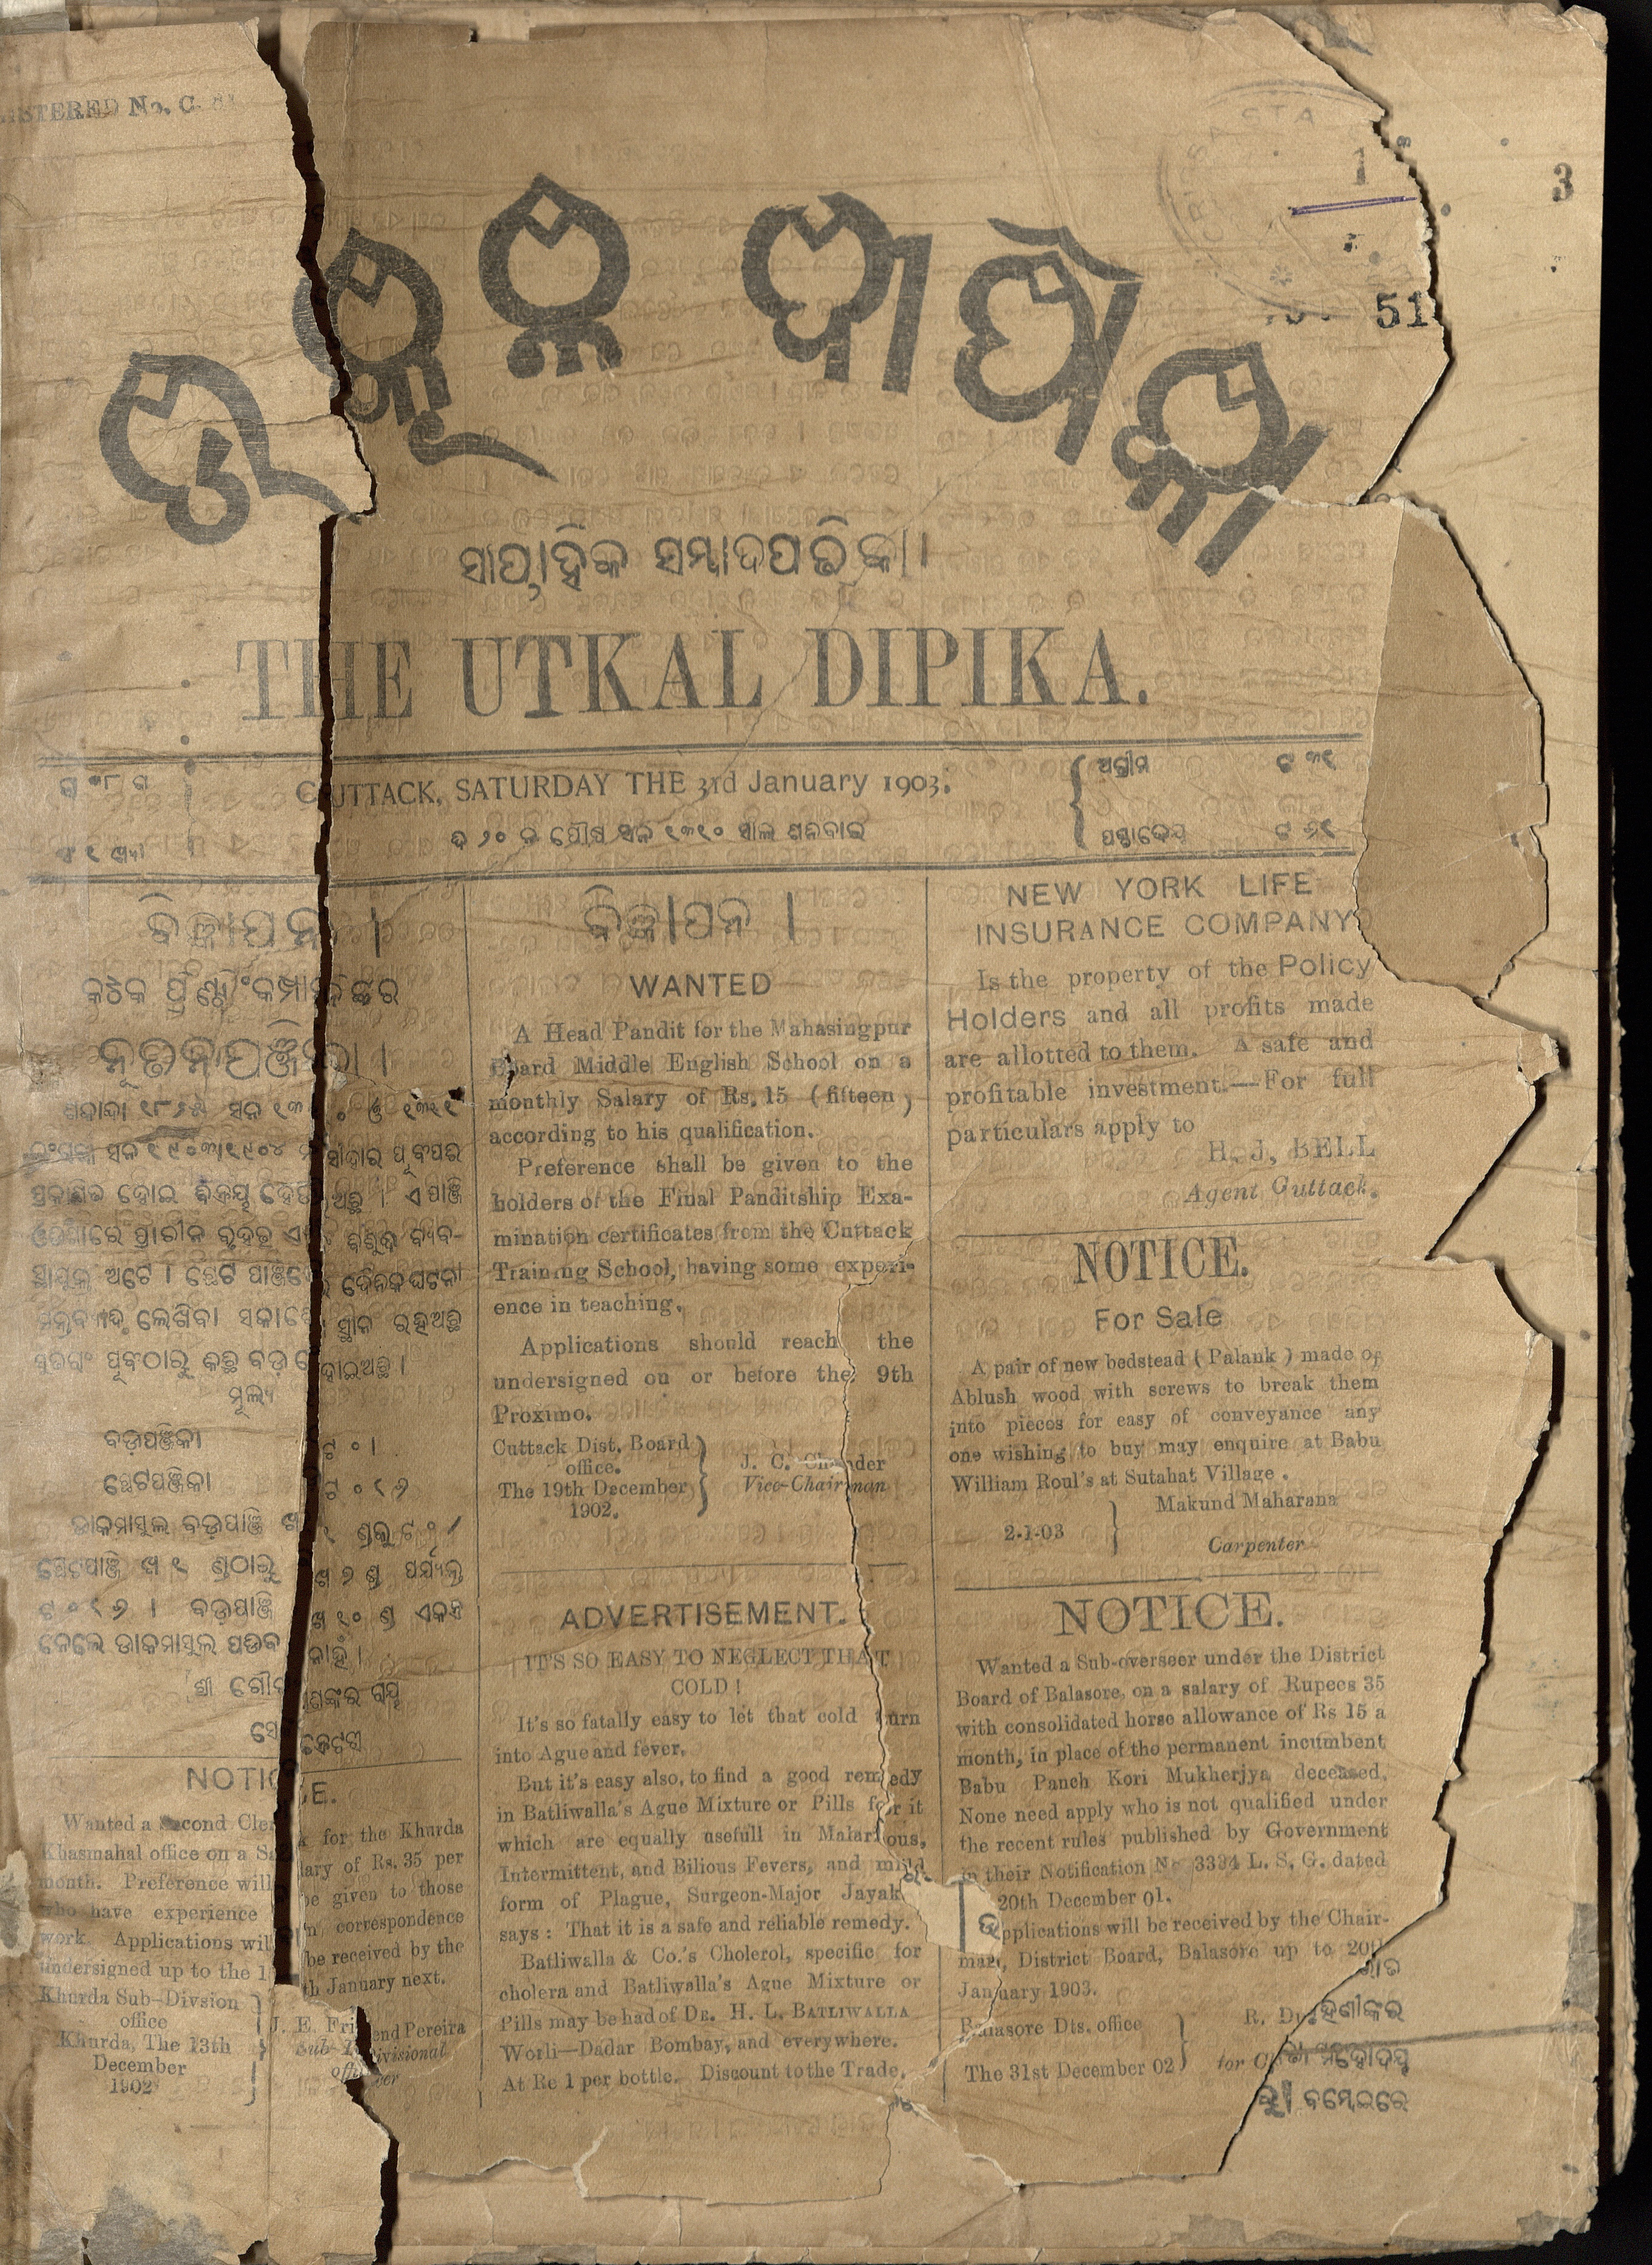 REGISTERED No. C.
1
3
51
ଉତ୍କଳ ଦୀପିକା
ସାପ୍ତାହିକ ସମ୍ବାଦପତ୍ରିକା।
THE UTKAL DIPIKA.
CUTTACK, SATURDAY THE 3rd January 1903.
ତା ୨୦ ନ ପୌଷ ସନ ୧୩୧୦ ସାଲ ଶନିବାର
ଅଗ୍ରୀମ ଟ ୩୧
ପଶ୍ଚାଦେୟ ଟ
ବିଜ୍ଞାପନ ।
କଟକ ପ୍ରିଣ୍ଟିଂକମ୍ପାନିଙ୍କର
ନୂତନପଞ୍ଜିକା ।
ପ୍ରକାଶିତ ହୋଇ ବିକ୍ରୟ ହେଉଅଛି । ଏ ପାଞ୍ଜି
ଓଡିଶାରେ ପ୍ରାଚୀନ ବୃହତ୍
ଅଟେ । ଛୋଟ ପାଞ୍ଜିରେ ଦୈନିକ ଘଟଣା
ଲେଖିବା ସକାଶେ ସ୍ଥାନ ରହିଅଛି
ପୂର୍ବଠାରୁ କିଛି ବଡ଼ ହୋଇଅଛି ।
ମୂଲ୍ୟ
ବଡ଼ପଞ୍ଜିକା ଟ ୦ ।
ଛୋଟପଞ୍ଜିକା ଟ ୦ ୧ ୬
ଡାକମାସୁଲ ବଡ଼ପାଞ୍ଜି ଖ ୧ ଣ୍ଡକୁ ଟ ୦
ଛୋଟପାଞ୍ଜି ଖ ୧ ଣ୍ଡଠାରୁ ଖ ୬ ଣ୍ଡ ପର୍ଯ୍ୟନ୍ତ
ଟ ୦ ୧ ୬ । ବଡ଼ପାଞ୍ଜି ଖ ୧୦ ଣ୍ଡ ଏକତ୍ର
ନେଲେ ଡାକମାସୁଲ ପଡିବ ନାହିଁ ।
ଶ୍ରୀ ଗୌରୀଶଙ୍କର ରାୟ
ସେକ୍ରେଟରୀ
NOTICE.
Wanted a Second Clerk for the Khurda
Khasmahal office on a Salary of Rs. 35 per
month. Preference will be given to those
who have experience in correspondence
work. Applications will be received by the
undersigned up to the 1 th January next.
Khurda Sub-Divsion
office
Khurda, The 13th
December
1902
J. E. Friend Pereira
Sub-Divisional
officer
ବିଜ୍ଞାପନ ।
WANTED
A Head Pandit for the Mahasingpur
Board Middle English School on a
monthly Salary of Rs. 15 (fifteen)
according to his qualification.
Preference shall be given to the
holders of the Final Panditship Exa-
mination certificates from the Cuttack
Training School, having some experi-
ence in teaching.
Applications should reach the
undersigned on or before the 9th
Proximo.
Cuttack Dist. Board
office.
The 19th December
1902.
J. C. Chunder
Vice-Chairman
ADVERTISEMENT.
IT'S SO EASY TO NEGLECT THAT
COLD !
It's so fatally easy to let that cold turn
into Ague and fever.
But it's easy also, to find a good remedy
in Batliwalla's Ague Mixture or Pills for it
which are equally usefull in Malarious,
Intermittent, and Bilious Fevers, and mild
form of Plague, Surgeon-Major Jayakar
says : That it is a safe and reliable remedy.
Batliwalla & Co.'s Cholerol, specific for
cholera and Batliwalla's Ague Mixture or
Pills may be had of DR. H. L. BATLIWALLA
Worli—Dadar Bombay, and everywhere.
At Re 1 per bottle. Discount to the Trade.
NEW YORK LIFE
INSURANCE COMPANY
Is the property of the Policy
Holders and all profits made
are allotted to them. A safe and
profitable investment.—For full
particulars apply to
H. J. BELL
Agent Cuttack.
NOTICE.
For Sale
A pair of new bedstead ( Palank ) made of
Ablush wood with screws to break them
into pieces for easy of conveyance any
one wishing to buy may enquire at Babu
William Roul's at Sutahat Village .
2-1-03
Makund Maharana
Carpenter
NOTICE.
Wanted a Sub-overseer under the District
Board of Balasore, on a salary of Rupees 35
with consolidated horse allowance of Rs 15 a
month, in place of the permanent incumbent
Babu Panch Kori Mukherjya deceased.
None need apply who is not qualified under
the recent rules published by Government
in their Notification No 3394 L. S. G. dated
20th December 01.
Applications will be received by the Chair-
man, District Board, Balasore up to 20th
January 1903.
Balasore Dts. office
The 31st December 02
R. D
for C
ହଣୀଙ୍କର
ମହୋଦୟ
ବମ୍ବେଇରେ